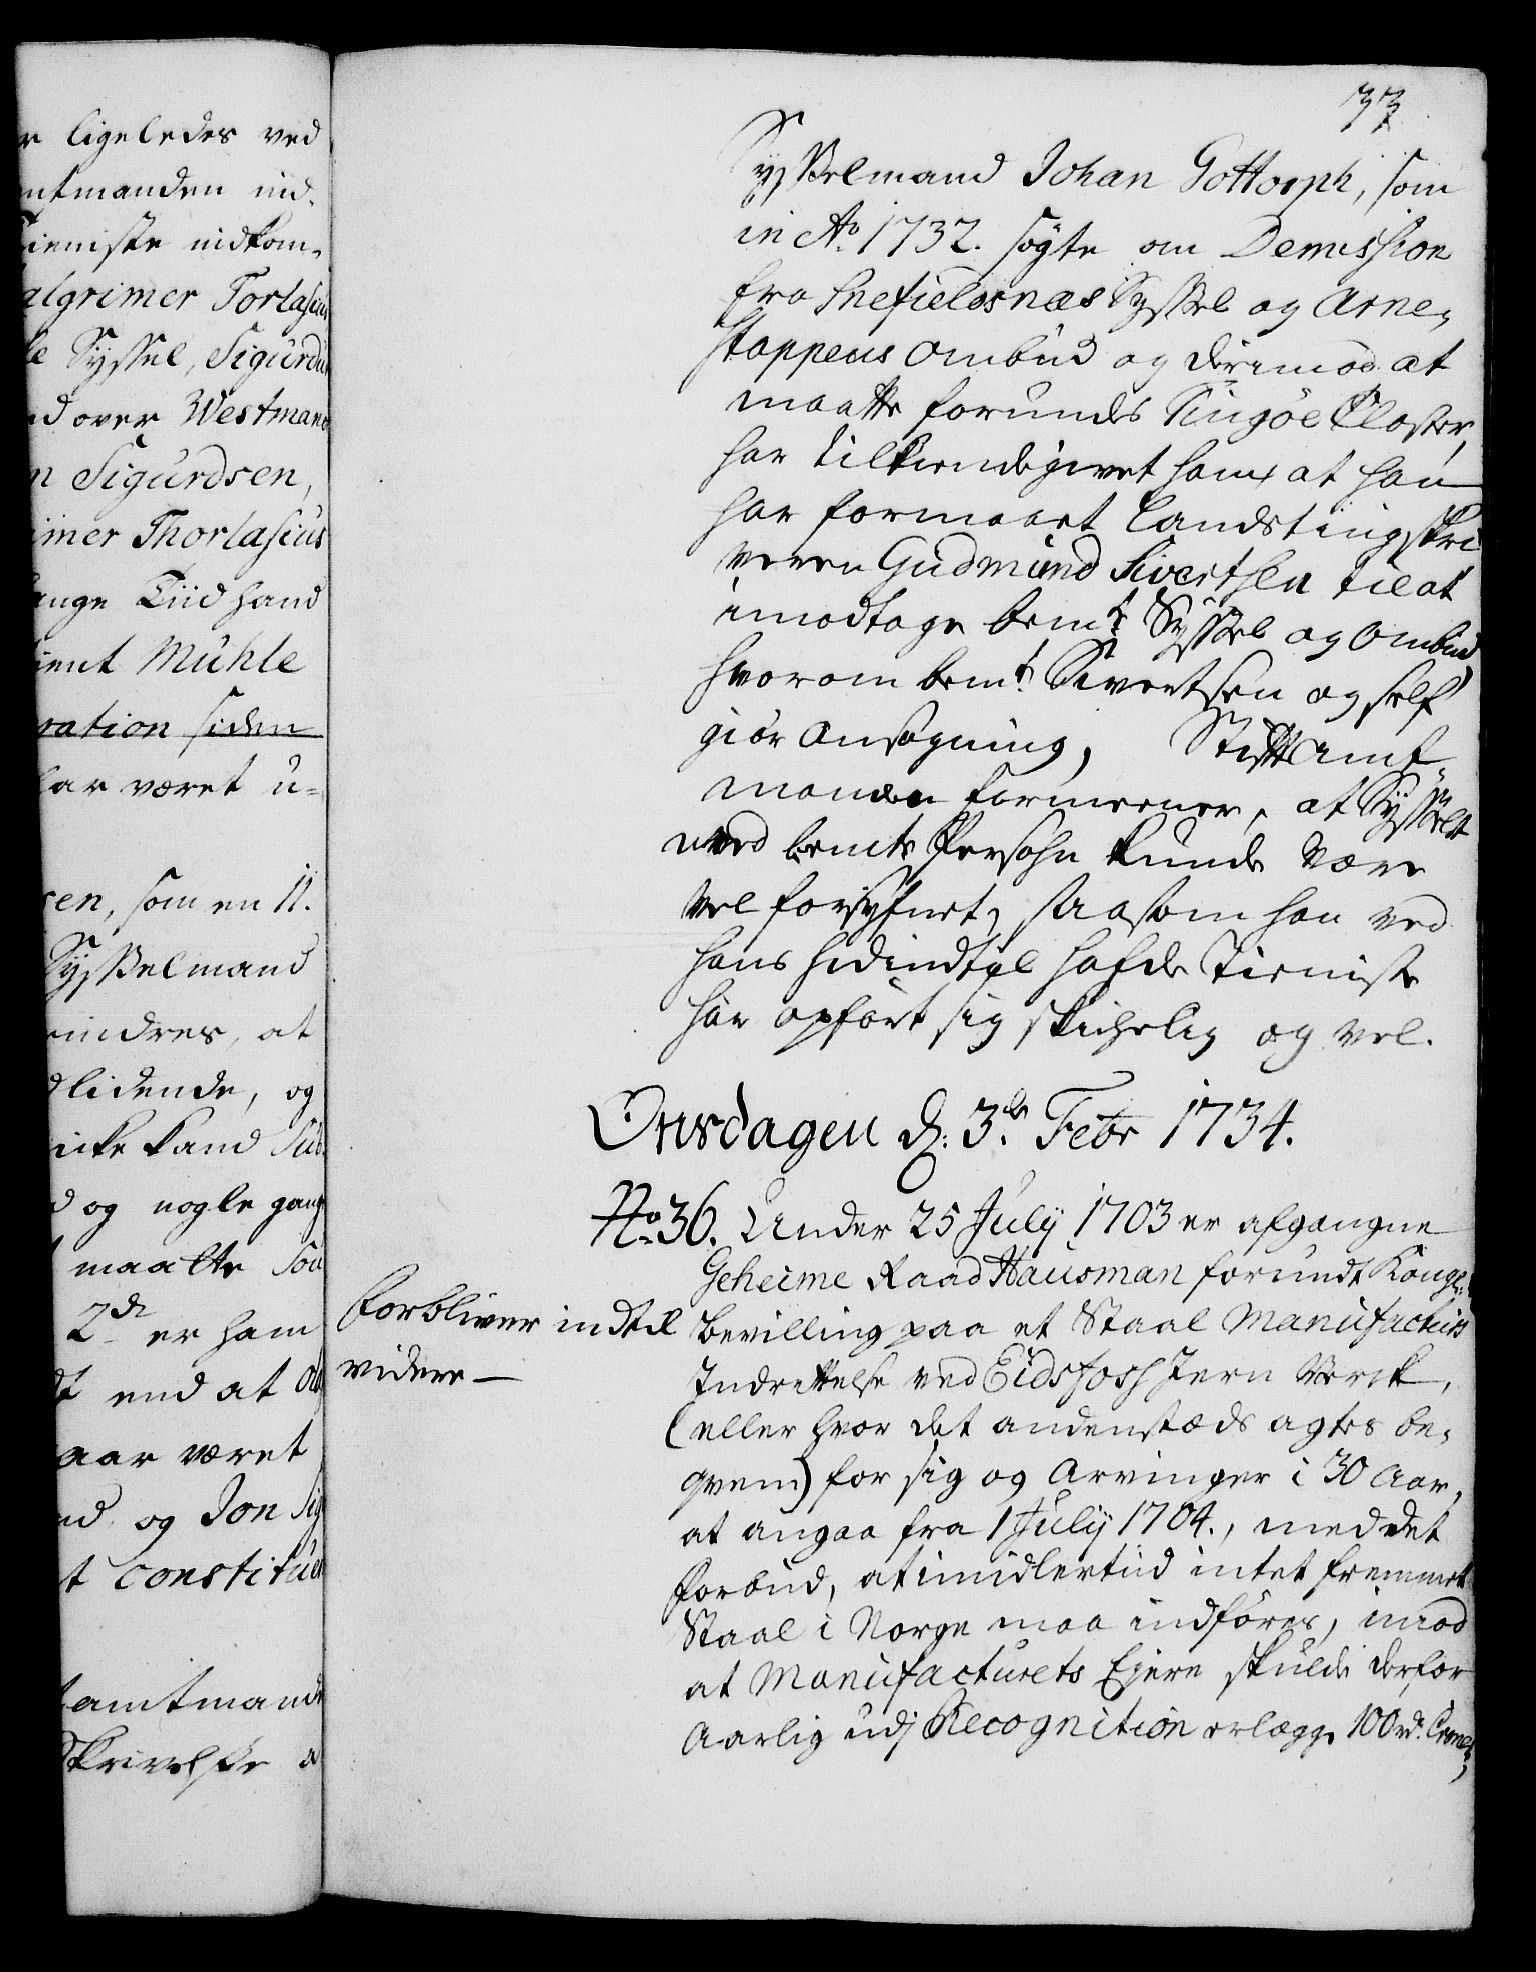 r ligeledes ved
mtmanden ind¬
ieniste indkom¬
algrimer Torlasius
le Syssel, Sigurdu
nd over Westmann
n Sigurdsen,
imer Thorlasius
ange Tiid hand
ient Mühle
ration siden
har været u=
sen, som en 11.
Sysselmand
indres, at
dlidende, og
icke kand Sub
d og nogle gang
maatte
2de er ham
dt end at
aar været
nd og Jon Sig
t constitue
tamtmand
Skrivelse
37
Sysselmand Johan Gottorph, som
in Ao. 1732. søgte om Demission
fra Snefieldsnæs Syssel og Arne¬
stappens Ombud og derimod at
maatte forundes Tingöe Closter,
har tilkiendegivet ham, at han
har formaaet Landstingskri
veren Gudmund Sivertsen til at
imodtage bemte. Syssel og Ombud,
hvorom bemte. Sivertsen og self
giör Ansøgning, Stiftamt¬
manden formeener, at Sysselet
med bemte Persohn kunde være
vel forsyfnet, saasom han ved
hans hidindtil hafde Tieniste
har opført sig skichelig og vel.
Onsdagen d. 3de. Febr 1734.
No. 36. Under 25 July 1703 er afgangne
Geheime Raad Hausman forundt Kongl:
Forbliver indtil
videre —
bevilling paa et Staal Manufacturs
Indrettelse ved Eidsfoss Jern Værck,
(eller hvor det andenstæds agtes be¬
qvem) for sig og Arvinger i 30 Aar,
at angaa fra 1 July 1704., med det
forbud, at imidlertiid intet fremmet
Staal i Norge maa indføres, imod
at Manufacturets Ejere skulde derfor
Aarlig udj Recognition erlægge 100 rdr. Croner,